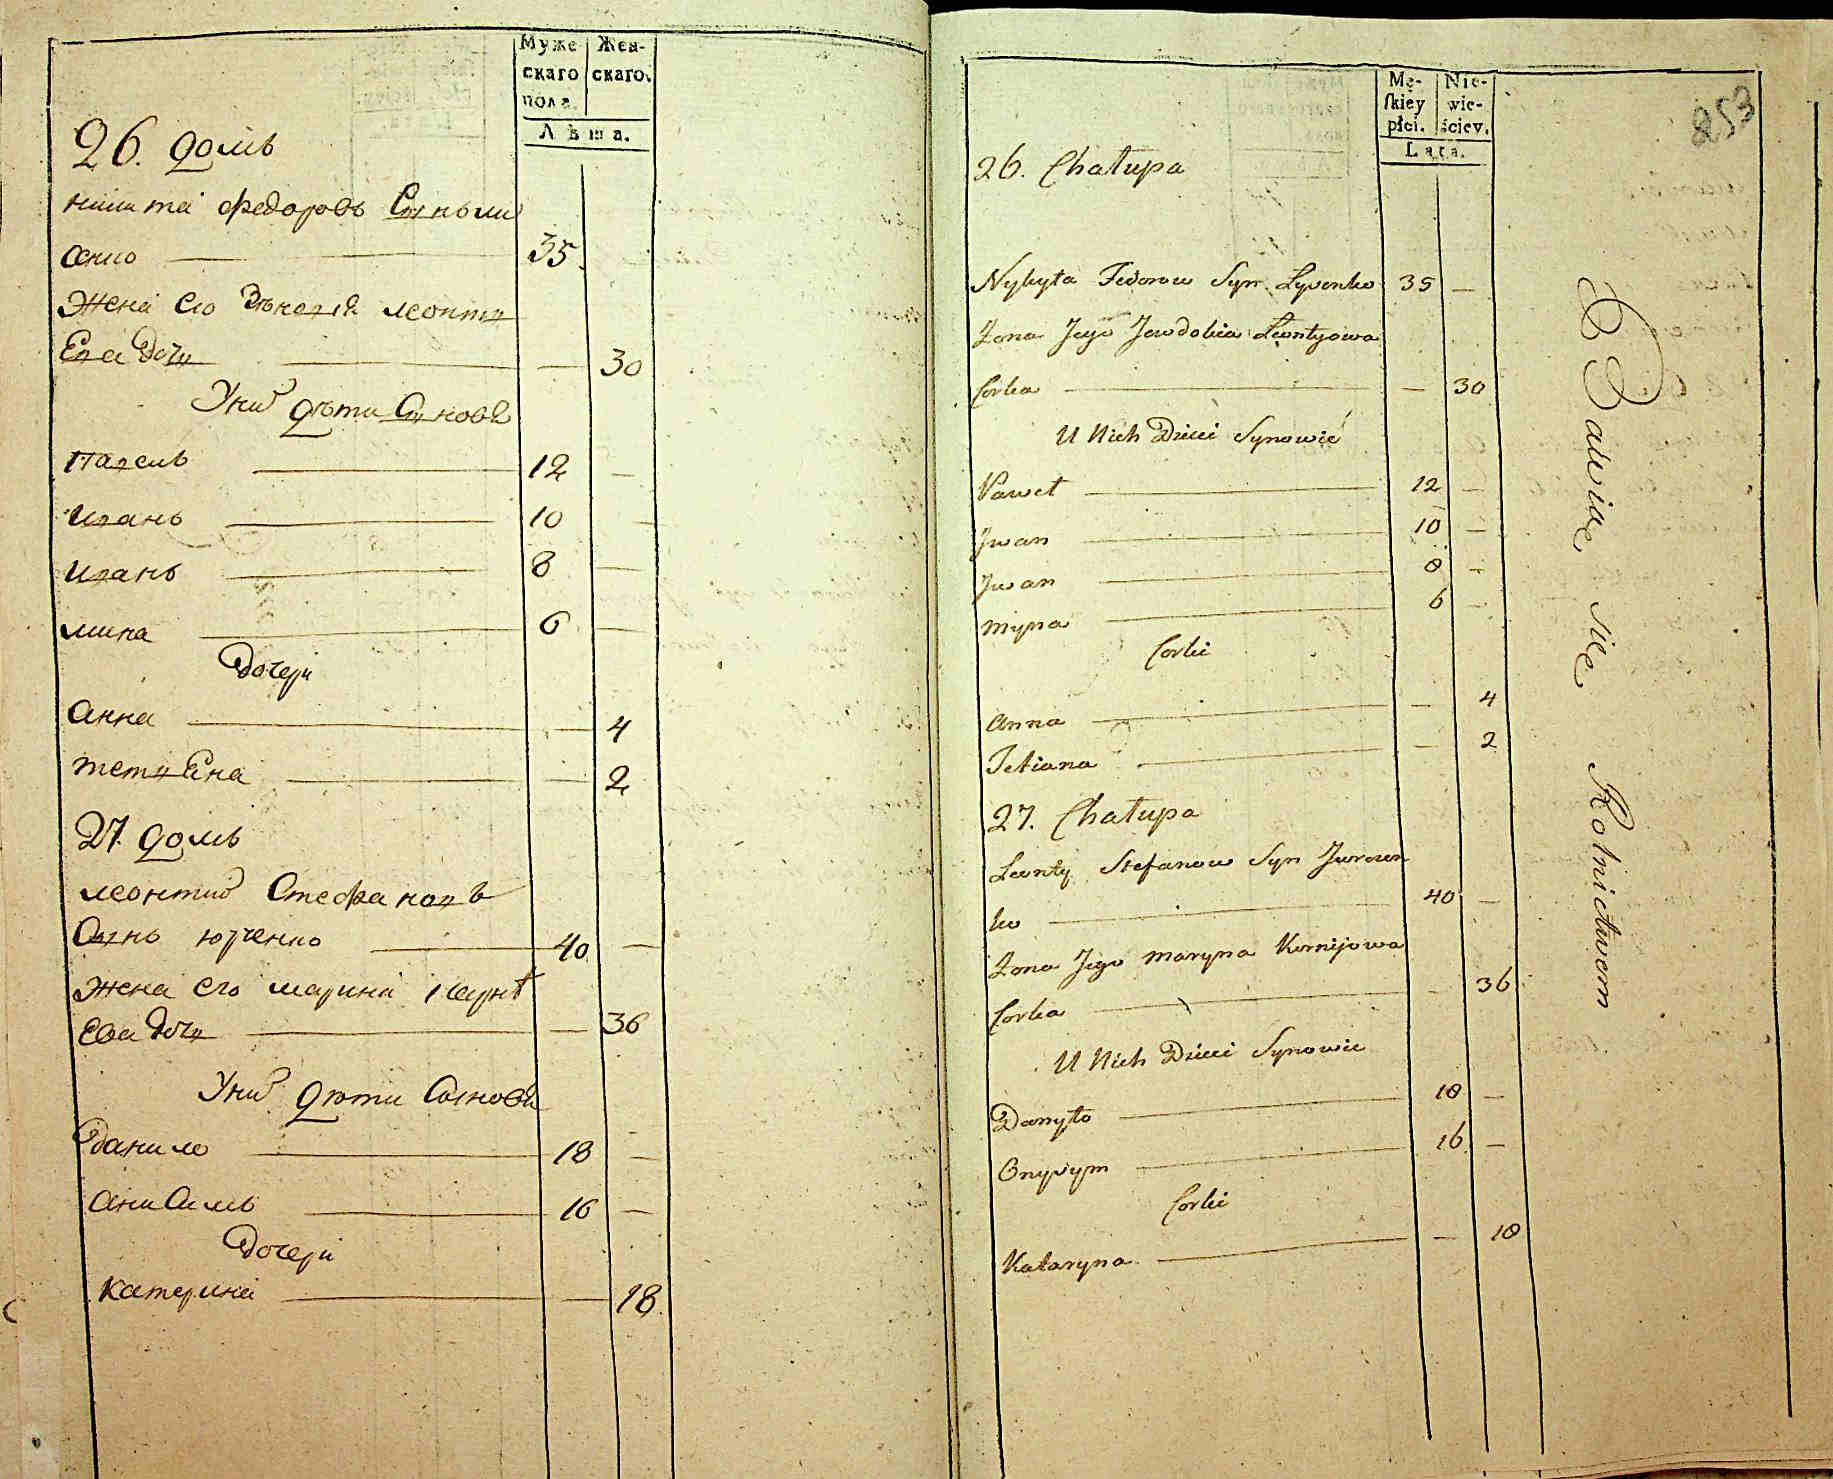 Муже
скаго
пола.
Жен-
скаго.
Лѣта.
26. домъ
никита федоровъ Сынъ лы
сенко 35.
жена его Явдокія леонты
ева дочь 30
У них дѣти Сыновя
павелъ 12
иванъ 10
иванъ 8
мина 6
дочери
анна 4
тетыяна 2
27. домъ
леонтий Стефановъ
Сынъ юрченко 40
жена его марина карнѣ
ева дочь 36
У них дѣти Сынове
данило 18
анисимъ 16
дочери
катерина 18
Mę-
skiey
płci.
Nie-
wie-
ściey.
Lata.
853
26. Chałupa
Nykyta Fedorow Syn Lysenko 35
Zona Jego Jewdokia Leontyowa
Corka 30
U Nich Dzieci Synowie
Paweł 12
Jwan 10
Jwan 8
Myna 6
Corki
Anna 4
Tetiana 2
27. Chałupa
Leonty Stefanow Syn Jurczen
ko 40
Zona Jego Maryna Kornijowa
Corka 36
U Nich Dzieci Synowie
Danyło 18
Onysym 16
Corki
Kataryna 18
Bawią się Rolnictwem